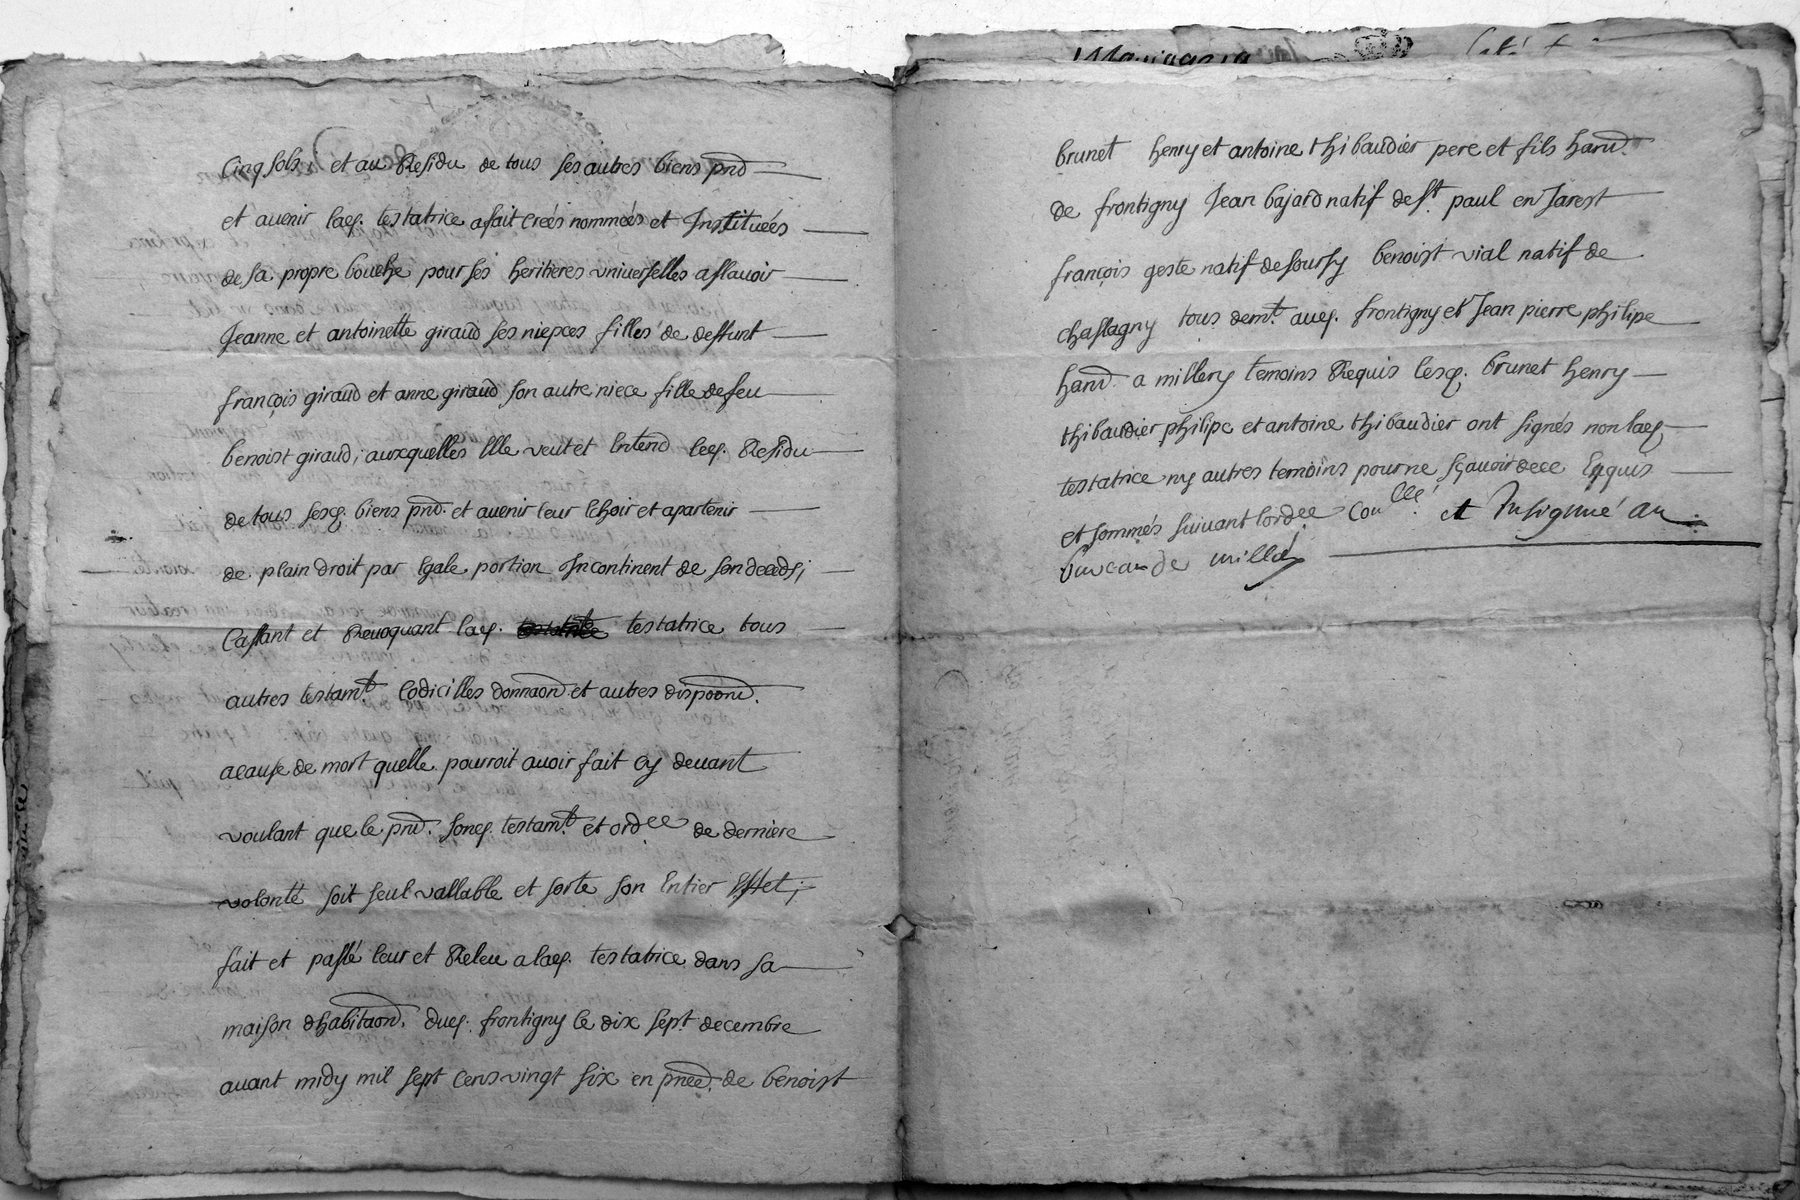 cinq sols, et au Residu de tous ses autres biens pnd
et auenir lad. testatrice a fait creés nommeés et Instituées
de sa propre bouche pour ses heritieres vniuerselles assauoir
Jeanne et antoinette giraud ses niepces filles de deffunt
françois giraud et anne giraud son autre niece fille de feu
benoist giraud, auxquelles Elle veut et Entend led. Residu
de tous sesd. biens pnd. et auenir leur Echoir et apartenir
de plain droit par Egale portion Incontinent de son deceds;
Cassant et Reuoquant lad. testatrice tous
autres testamt. Codicilles donnaond et autres dispoond.
acause de mort quelle pourroit auoir fait cy deuant
voulant que le pnd. sond. testamt. et ordce de derniere
volonté soit seul vallable et sorte son Entier Effet;
fait et passé leur et Releu a lad. testatrice dans sa
maison dhabitaond. dud. frontigny le dix sept decembre
auant midy mil sept cens vingt six en pnced. de benoist
brunet henry et antoine thibaudier pere et fils hand.
de frontigny Jean bajard natif de st. paul en Jarest
françois geste natif de soursy benoist vial natif de
chassagny tous demt. aud. frontigny et Jean pierre philipe
hand. a millery temoins Requis lesd. brunet henry
thibaudier philipe et antoine thibaudier ont signés non lad.
testatrice ny autres temoins pour ne sçauoir de ce Enquis
et sommés suiuant lordce Conllé et Insignué au
bureau de millery